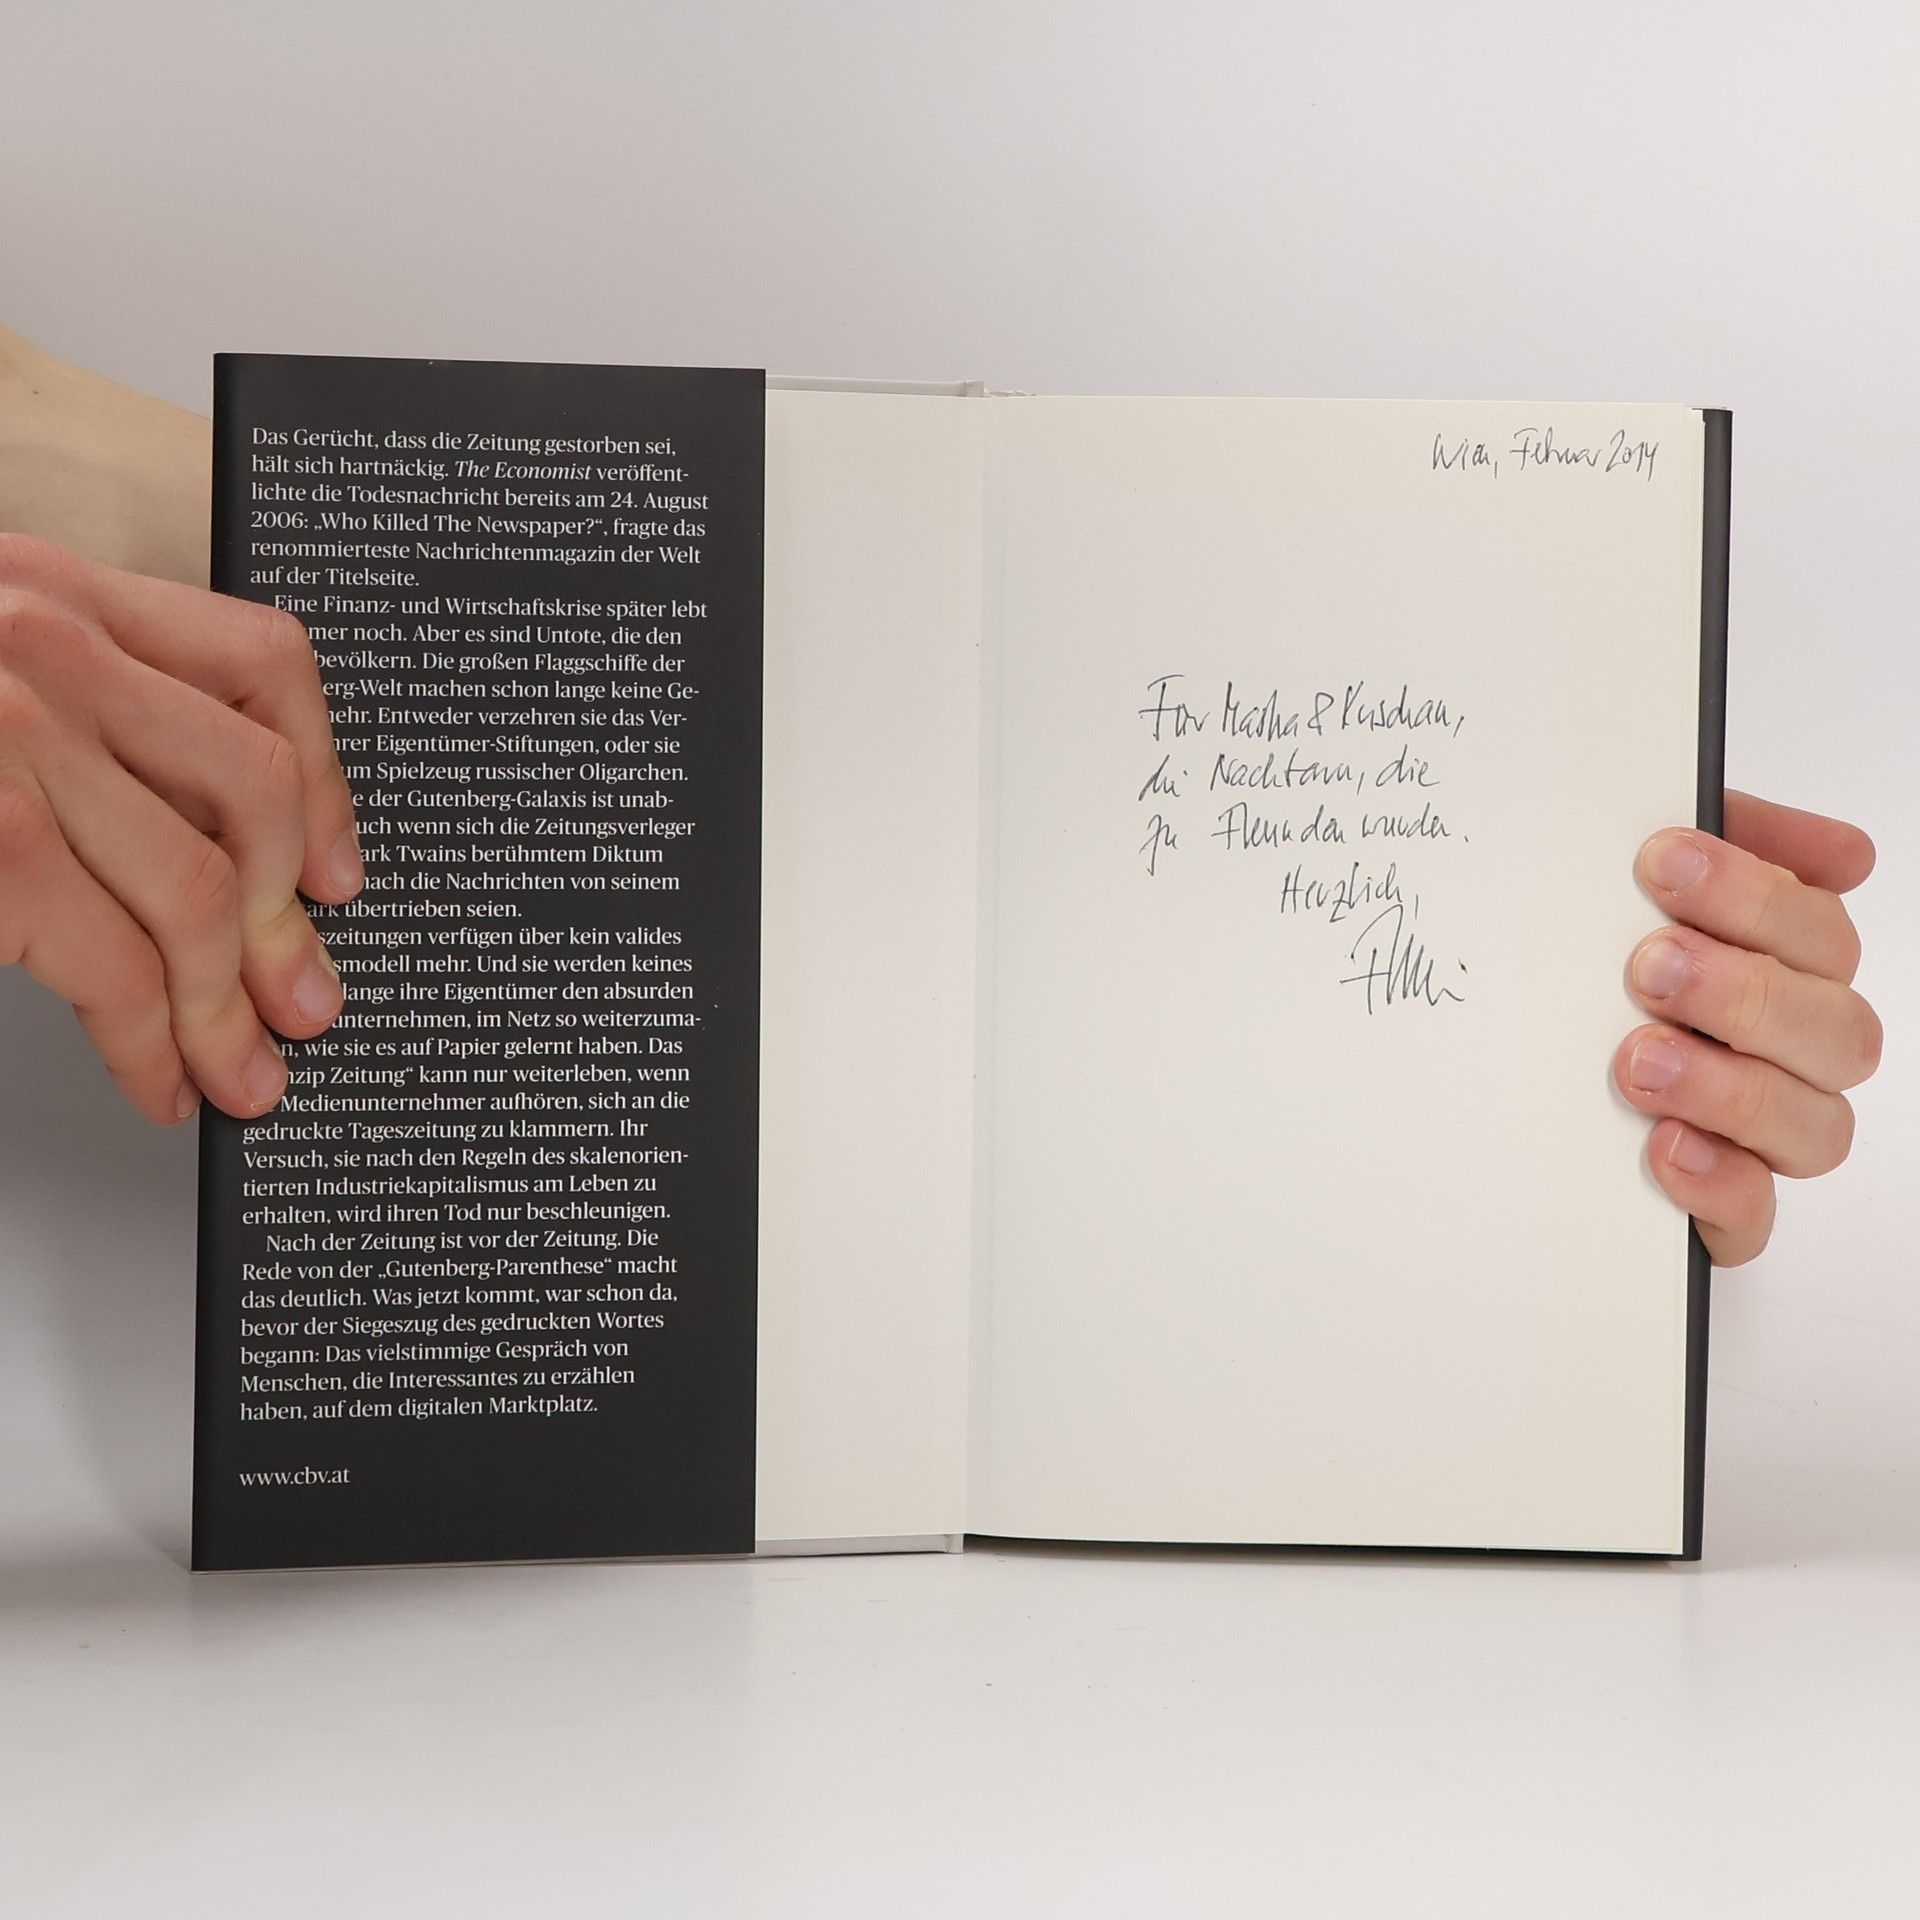 Das Gerücht, dass die Zeitung gestorben sei,
hält sich hartnäckig. The Economist veröffent-
lichte die Todesnachricht bereits am 24. August
2006: „Who Killed The Newspaper?“, fragte das
renommierteste Nachrichtenmagazin der Welt
auf der Titelseite.
Eine Finanz- und Wirtschaftskrise später lebt
mer noch. Aber es sind Untote, die den
bevölkern. Die großen Flaggschiffe der
erg-Welt machen schon lange keine Ge-
mehr. Entweder verzehren sie das Ver-
hrer Eigentümer-Stiftungen, oder sie
um Spielzeug russischer Oligarchen.
e der Gutenberg-Galaxis ist unab-
uch wenn sich die Zeitungsverleger
ark Twains berühmtem Diktum
nach die Nachrichten von seinem
ark übertrieben seien.
szeitungen verfügen über kein valides
smodell mehr. Und sie werden keines
lange ihre Eigentümer den absurden
unternehmen, im Netz so weiterzuma-
n, wie sie es auf Papier gelernt haben. Das
nzip Zeitung“ kann nur weiterleben, wenn
Medienunternehmer aufhören, sich an die
gedruckte Tageszeitung zu klammern. Ihr
Versuch, sie nach den Regeln des skalenorien-
tierten Industriekapitalismus am Leben zu
erhalten, wird ihren Tod nur beschleunigen.
Nach der Zeitung ist vor der Zeitung. Die
Rede von der „Gutenberg-Parenthese“ macht
das deutlich. Was jetzt kommt, war schon da,
bevor der Siegeszug des gedruckten Wortes
begann: Das vielstimmige Gespräch von
Menschen, die Interessantes zu erzählen
haben, auf dem digitalen Marktplatz.
www.cbv.at
Wien, Februar 2014
Für Masha &
die Nachbarn, die
zu Freunden wurden.
Herzlich,